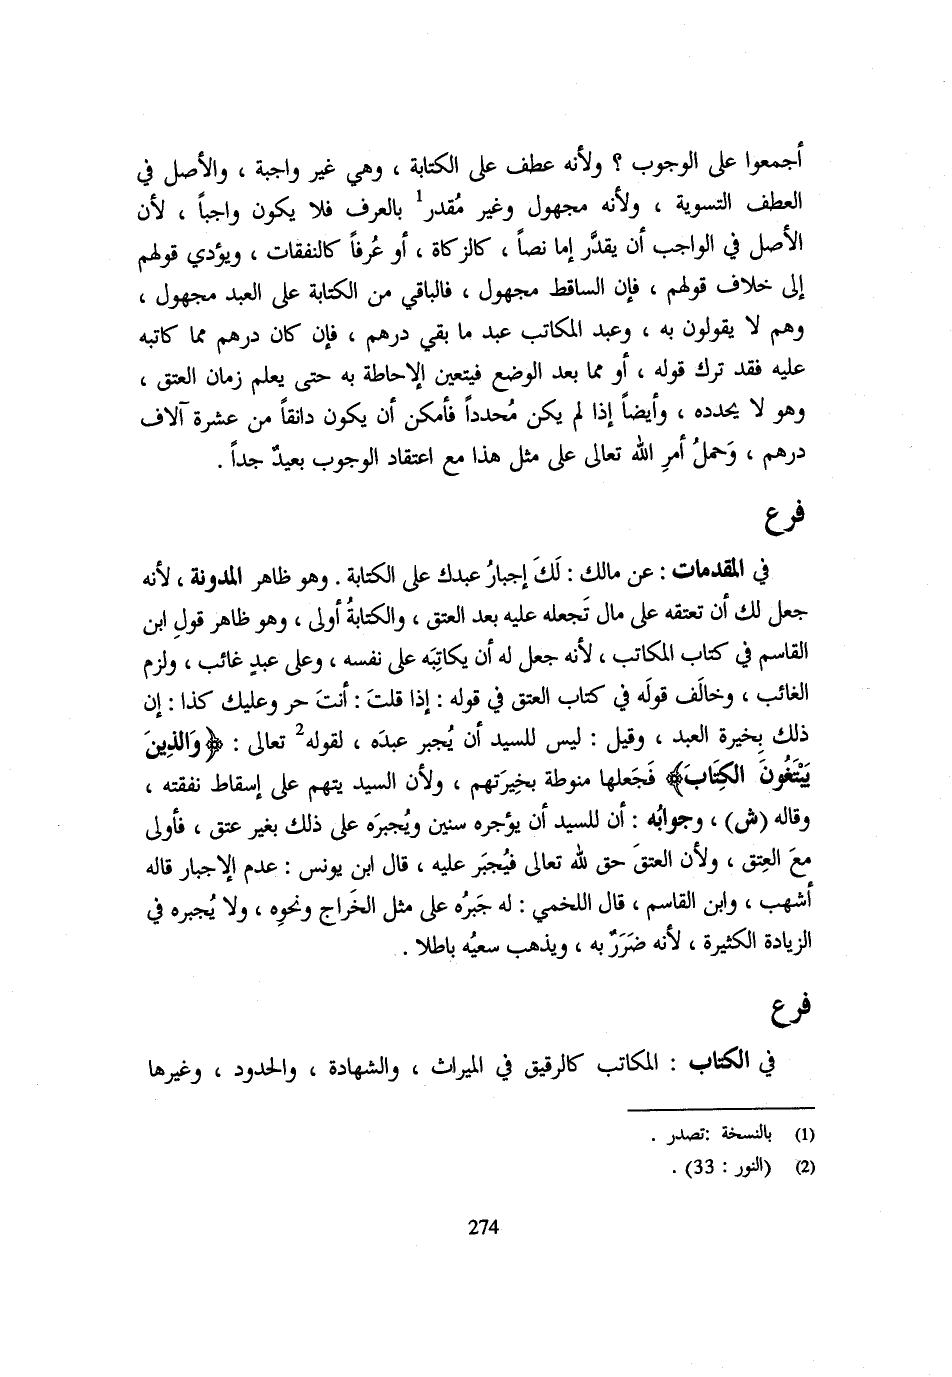 أجمعوا على الوجوب ؟ ولأنه عطف على الكتابة ، وهي غير واجبة ، والأصل في
العطف التسوية ، ولأنه مجهول وغير مُقدر1 بالعرف فلا يكون واجباً ، لأن
الأصل في الواجب أن يقدَّر إما نصاً ، كالزكاة ، أو عُرفاً كالنفقات ، ويؤدي قولهم
إلى خلاف قولهم ، فإن الساقط مجهول ، فالباقي من الكتابة على العبد مجهول ،
وهم لا يقولون به ، وعبد المكاتب عبد ما بقي درهم ، فإن كان درهم مما كاتبه
عليه فقد ترك قوله ، أو مما بعد الوضع فيتعين الإحاطة به حتى يعلم زمان العتق ،
وهو لا يحدده ، وأيضاً إذا لم يكن مُحدداً فأمكن أن يكون دانقاً من عشرة آلاف
درهم ، وَحملُ أمرِ الله تعالى على مثل هذا مع اعتقاد الوجوب بعيدٌ جداً .
فرع
في المقدمات : عن مالك : لَكَ إجبارُ عبدك على الكتابة . وهو ظاهر المدونة ، لأنه
جعل لك أن تعتقه على مال تَجعله عليه بعد العتق ، والكتابةُ أولى ، وهو ظاهر قولِ ابن
القاسم في كتاب المكاتب ، لأنه جعل له أن يكاتِبَه على نفسه ، وعلى عبدٍ غائب ، ولزم
الغائب ، وخالَف قولَه في كتاب العتق في قوله : إذا قلتَ : أنتَ حر وعليك كذا : إن
ذلك بِخيرة العبد ، وقيل : ليس للسيد أن يُجبر عبدَه ، لقوله2 تعالى : ﴿وَالذِينَ
يَبْتَغُونَ الكِتَابَ﴾ فَجَعلها منوطة بخِيرَتهم ، ولأن السيد يتهم على إسقاط نفقته ،
وقاله (ش) ، وجوابُه : أن للسيد أن يؤجره سنين ويُجبرَه على ذلك بغير عتق ، فأولى
معَ العِتق ، ولأن العتقَ حق لله تعالى فيُجبَر عليه ، قال ابن يونس : عدم الإجبار قاله
أشهب ، وابن القاسم ، قال اللخمي : له جَبرُه على مثل الخَراج ونحوِه ، ولا يُجبره في
الزيادة الكثيرة ، لأنه ضَرَرٌ به ، ويذهب سعيُه باطلا .
فرع
في الكتاب : المكاتب كالرقيق في الميراث ، والشهادة ، والحدود ، وغيرها
(1) بالنسخة :تصدر .
(2) (النور : 33) .
274